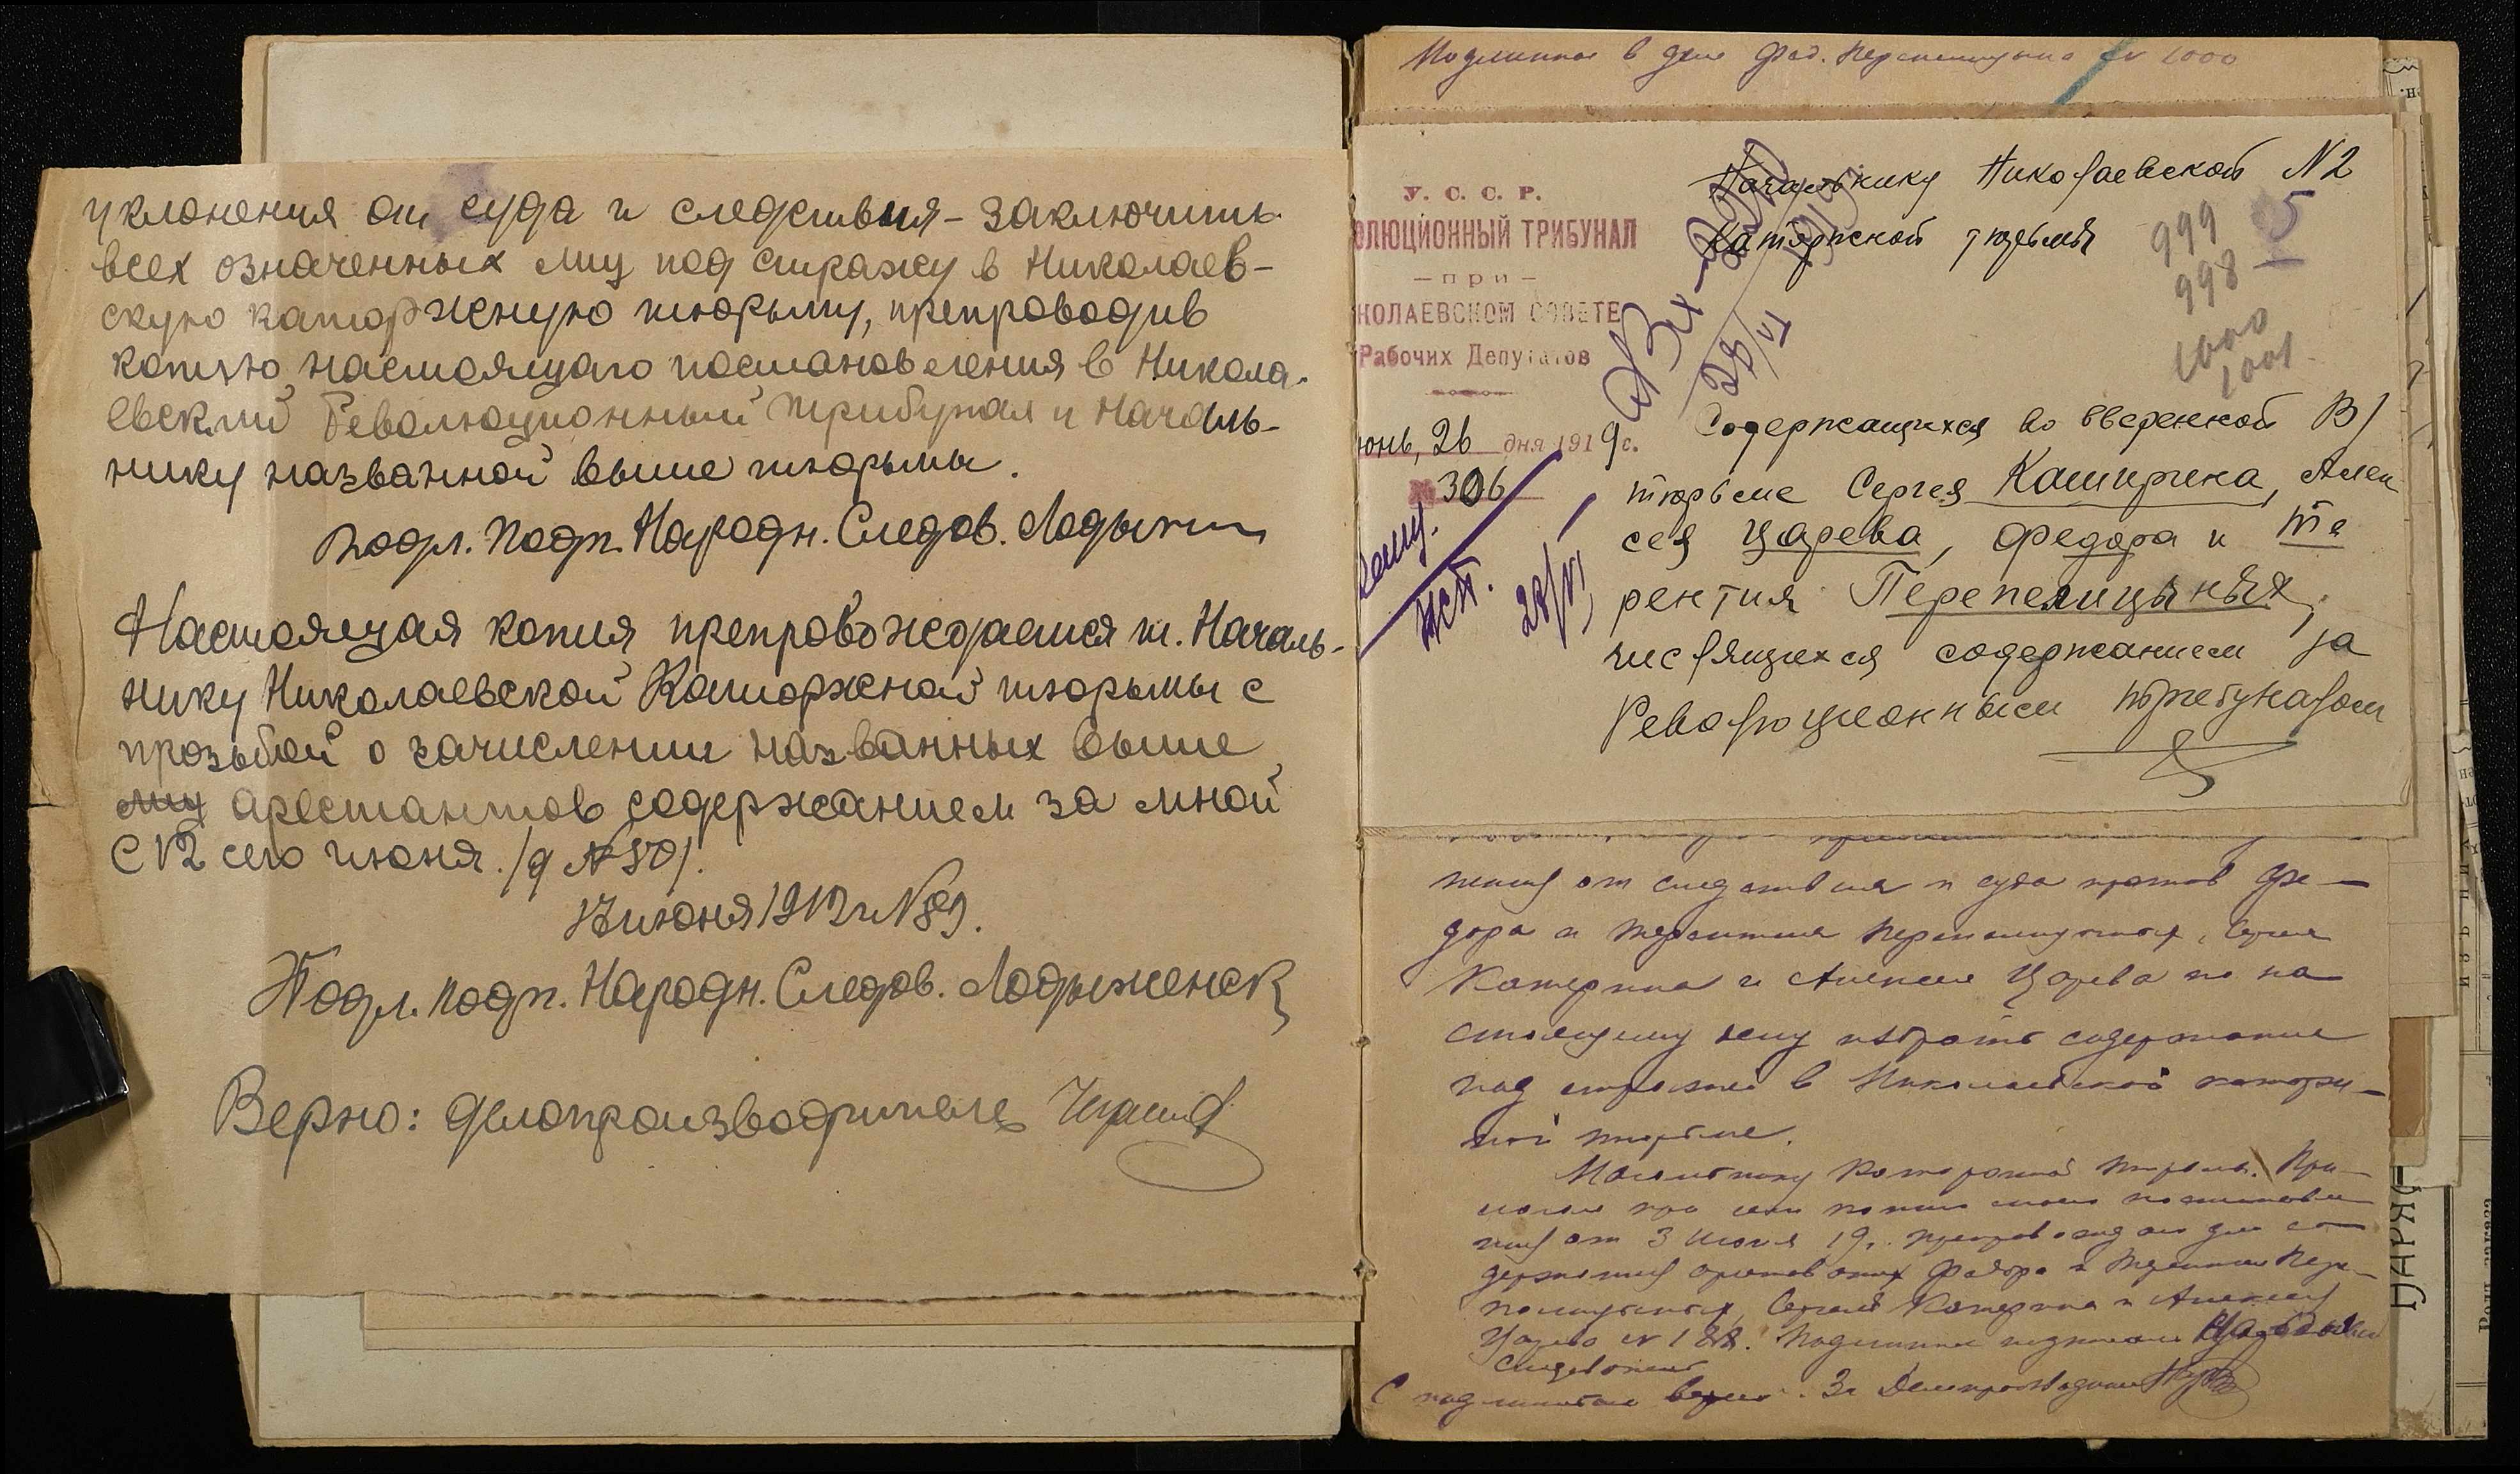 уклонения от суда и следствия – заключить
всех означенных лиц под стражу в Николаев-
скую каторжную тюрьму, препроводив
копию настоящаго постановления в Никола-
евский Революционный трибунал и Началь-
нику названной выше тюрьмы.
Подл. подп. Народн. Следов.
Настоящая копия препровождается т. Началь-
нику Николаевской Каторжной тюрьмы с
прозьбой о зачислении названных выше
лиц арестантов содержанием за мной
с 12 сего июня.
июня
Подл. подп. Народн. Следов. Лодыженск
Верно: делопроизводитель
Подлинное в деле Фед. Перепелицына № 1000
У. С. С. Р.
ОЛЮЦИОННЫЙ ТРИБУНАЛ
– при –
КОЛАЕВСКОМ СОВЕТЕ
Рабочих Депутатов
юнь, 26 дня 1919 г.
№ 306
Начальнику Николаевской N 2
Каторжской тюрьмы
999
998
1000
1001
5
28/VI
Содержащихся во вверенной В/
тюрьме Сергея Каширина, Алек
сея Царева, Федора и Те
рентия Перепелицыных,
числящихся содержанием за
Революционным трибуналом
28/VI
от следствия и суда против Фе–
дора и Терентия Перепелицыных, Сергея
Катерина и Алексея Царева по на
стоящему делу избрать содержание
под стражей в Николаевской каторж–
ной тюрьме.
Начальнику Каторжной тюрьмы. При–
от 3 Июня 19 г. препровождаю для со
держания арестованных Федора и Терентия Пере–
пелицыных, Сергея Катерина и Алексея
Царева № 188. Подлинное подписал
Следователь
С подлинным верно. За Делопроизводителя